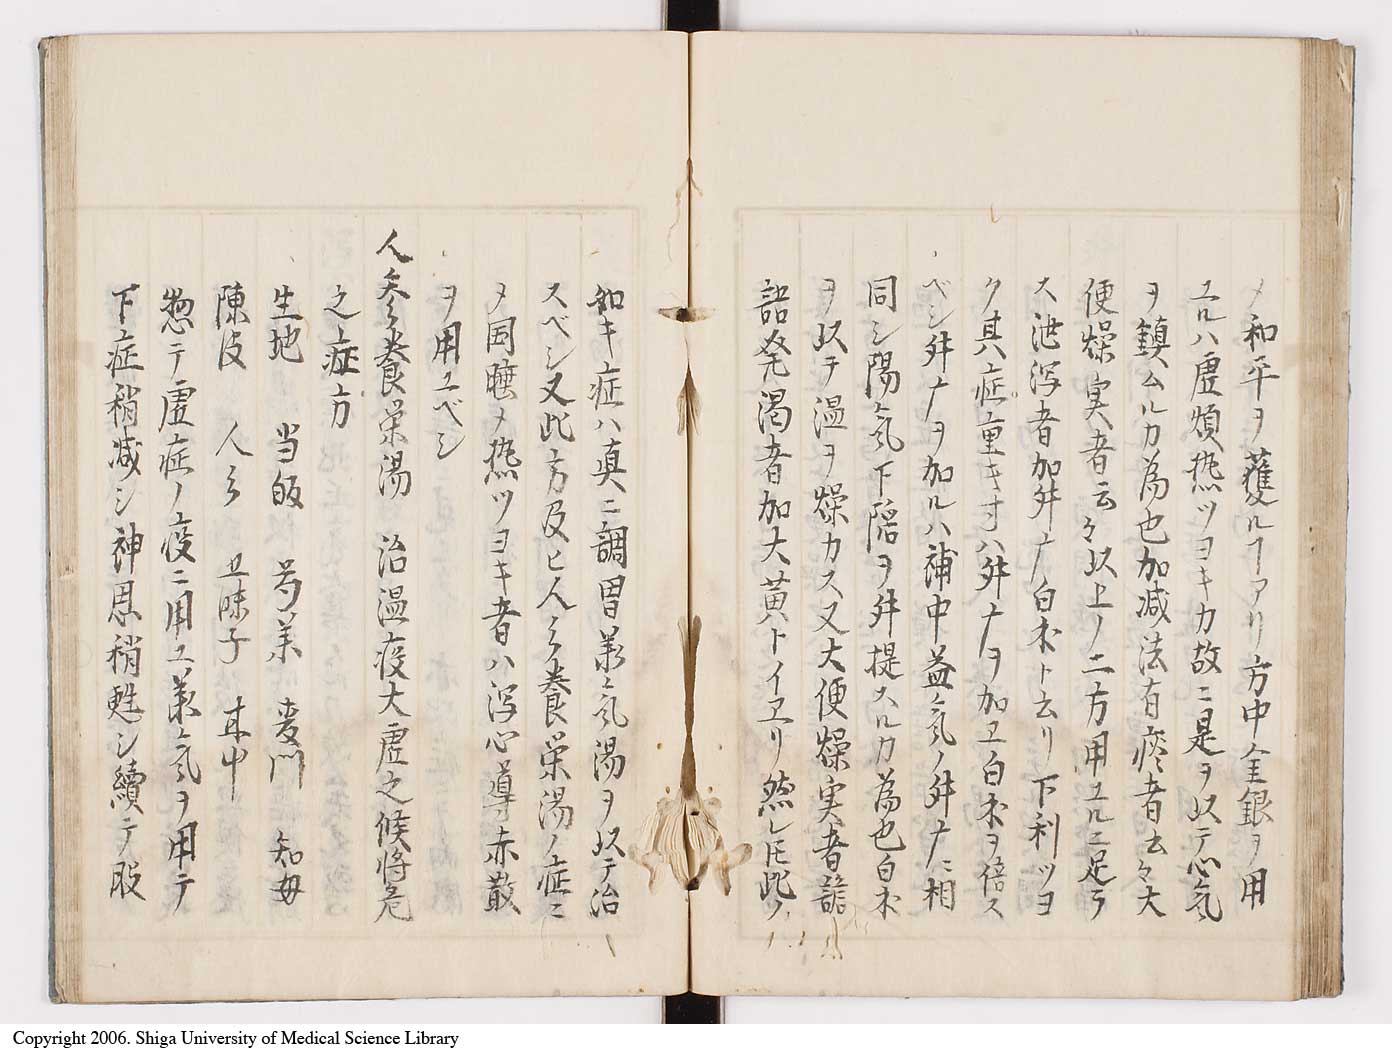 メ和平ヲ獲ルヿアリ方中金銀ヲ用
ユルハ虚煩熱ツヨキカ故ニ是ヲ以テ心気
ヲ鎮ムルカ為也加減法有痰者云々大
便燥実者云々以上ノ二方用ユルニ足ラ
ス泄瀉者加舛广白朮ト云リ下利ツヨ
ク其症重キ寸ハ舛广ヲ加ヱ白朮ヲ倍ス
ベシ舛广ヲ加ルハ補中益気ノ舛广ニ相
同シ陽気下陥ヲ舛提スルカ為也白朮
ヲ以テ湿ヲ燥カス又大便燥実者譫
語発渇者加大黄トイヱリ然レ𪜈此ノ
如キ症ハ真ニ調胃羕気湯ヲ以テ治
スベシ又此方及ヒ人参養栄湯ノ症ニ
メ困睡メ熱ツヨキ者ハ瀉心導赤散
ヲ用ユベシ
人参養栄湯 治温疫大虚之候将危
之症方
生地 当皈 芍薬 麦門 知母
陳皮 人参 五味子 甘中
惣テ虚症ノ疫ニ用ユ羕気ヲ用テ
下症稍減シ神思稍甦シ續テ股